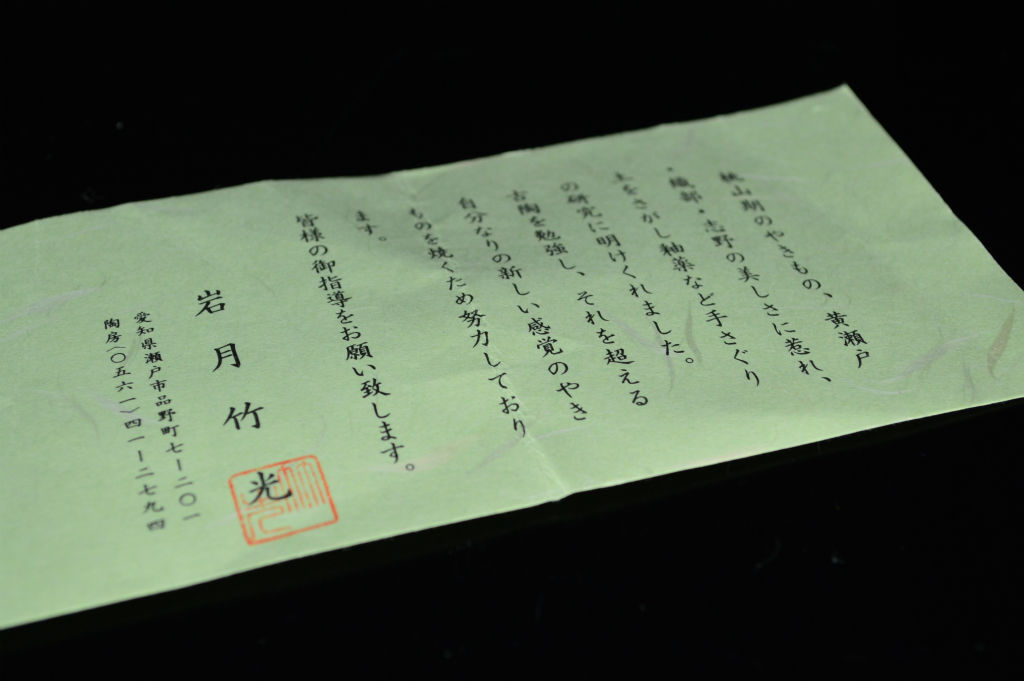 桃山期のやきもの、黄瀬戸
・織部・志野の美しさに惹れ、
土をさがし釉薬など手さぐり
の研究に明けくれました。
古陶を勉強し、それを超える
自分なりの新しい感覚のやき
ものを焼くため努力しており
ます。
皆様の御指導をお願い致します。
岩月竹光
愛知県瀬戸市品野町七ー二〇一
陶房(〇五六一)四一ー二七九四
竹光